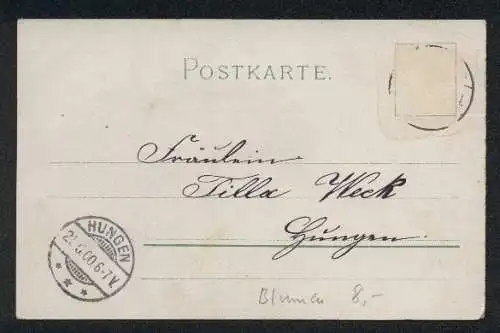 POSTKARTE.
Fräulein
Tilla Weck
Hungen.
HUNGEN
6-7V.
Blumen 8,-